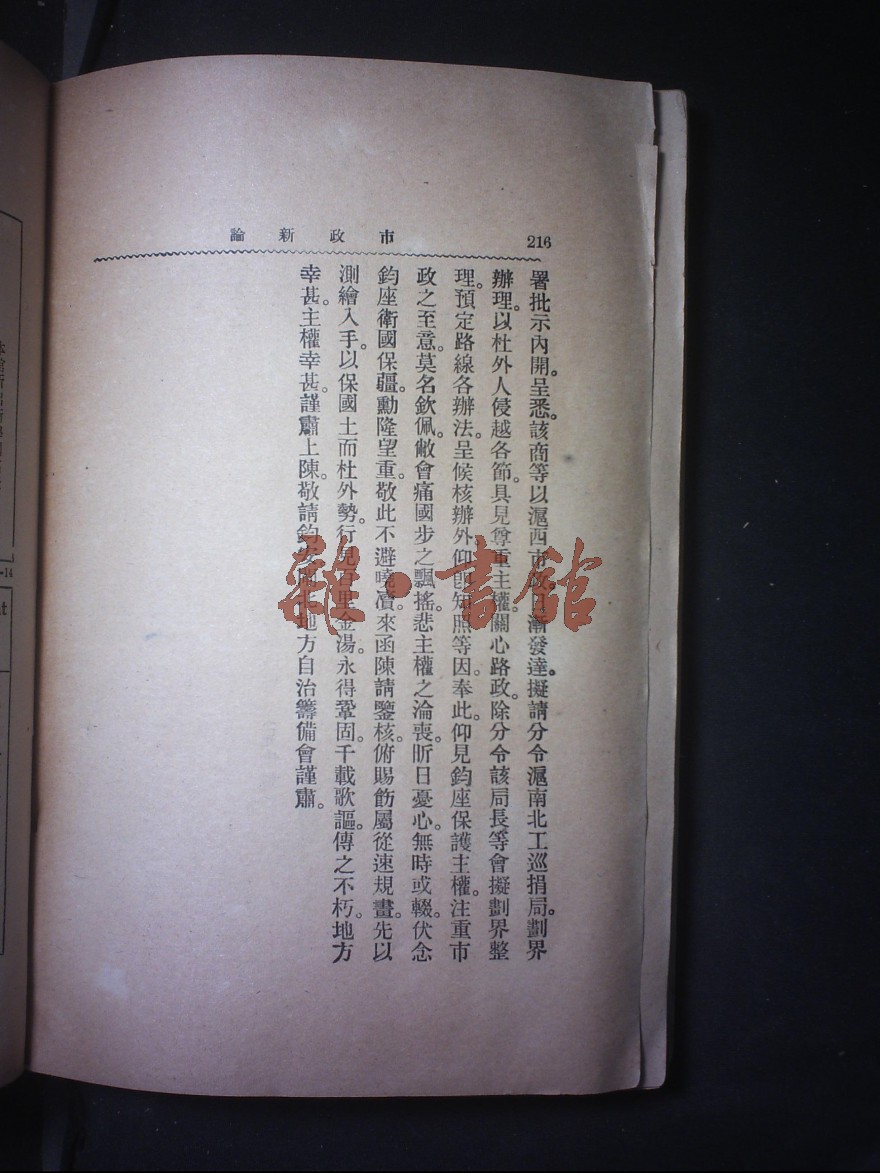 216
市政新論
署批示內開。呈悉。該商等以滬西市政日漸發達。擬請分令滬南北工巡捐局。劃界
辦理。以杜外人侵越各節。具見尊重主權。關心路政。除分令該局長等會擬劃界整
理。預定路線各辦法。呈候核辦外仰卽知照等因。奉此。仰見鈞座保護主權。注重市
政之至意。莫名欽佩。敝會痛國步之飄搖。悲主權之淪喪。昕日憂心。無時或輟。伏念
鈞座衛國保疆。勳隆望重。敬此不避嘵瀆。來函陳請鑒核。俯賜飭屬從速規畫。先以
測繪入手。以保國土而杜外勢。行見百里金湯。永得鞏固。千載歌謳。傳之不朽。地方
幸甚。主權幸甚。謹肅上陳。敬請鈞 北地方自治籌備會謹肅。
雜·書館
本館所出
-14